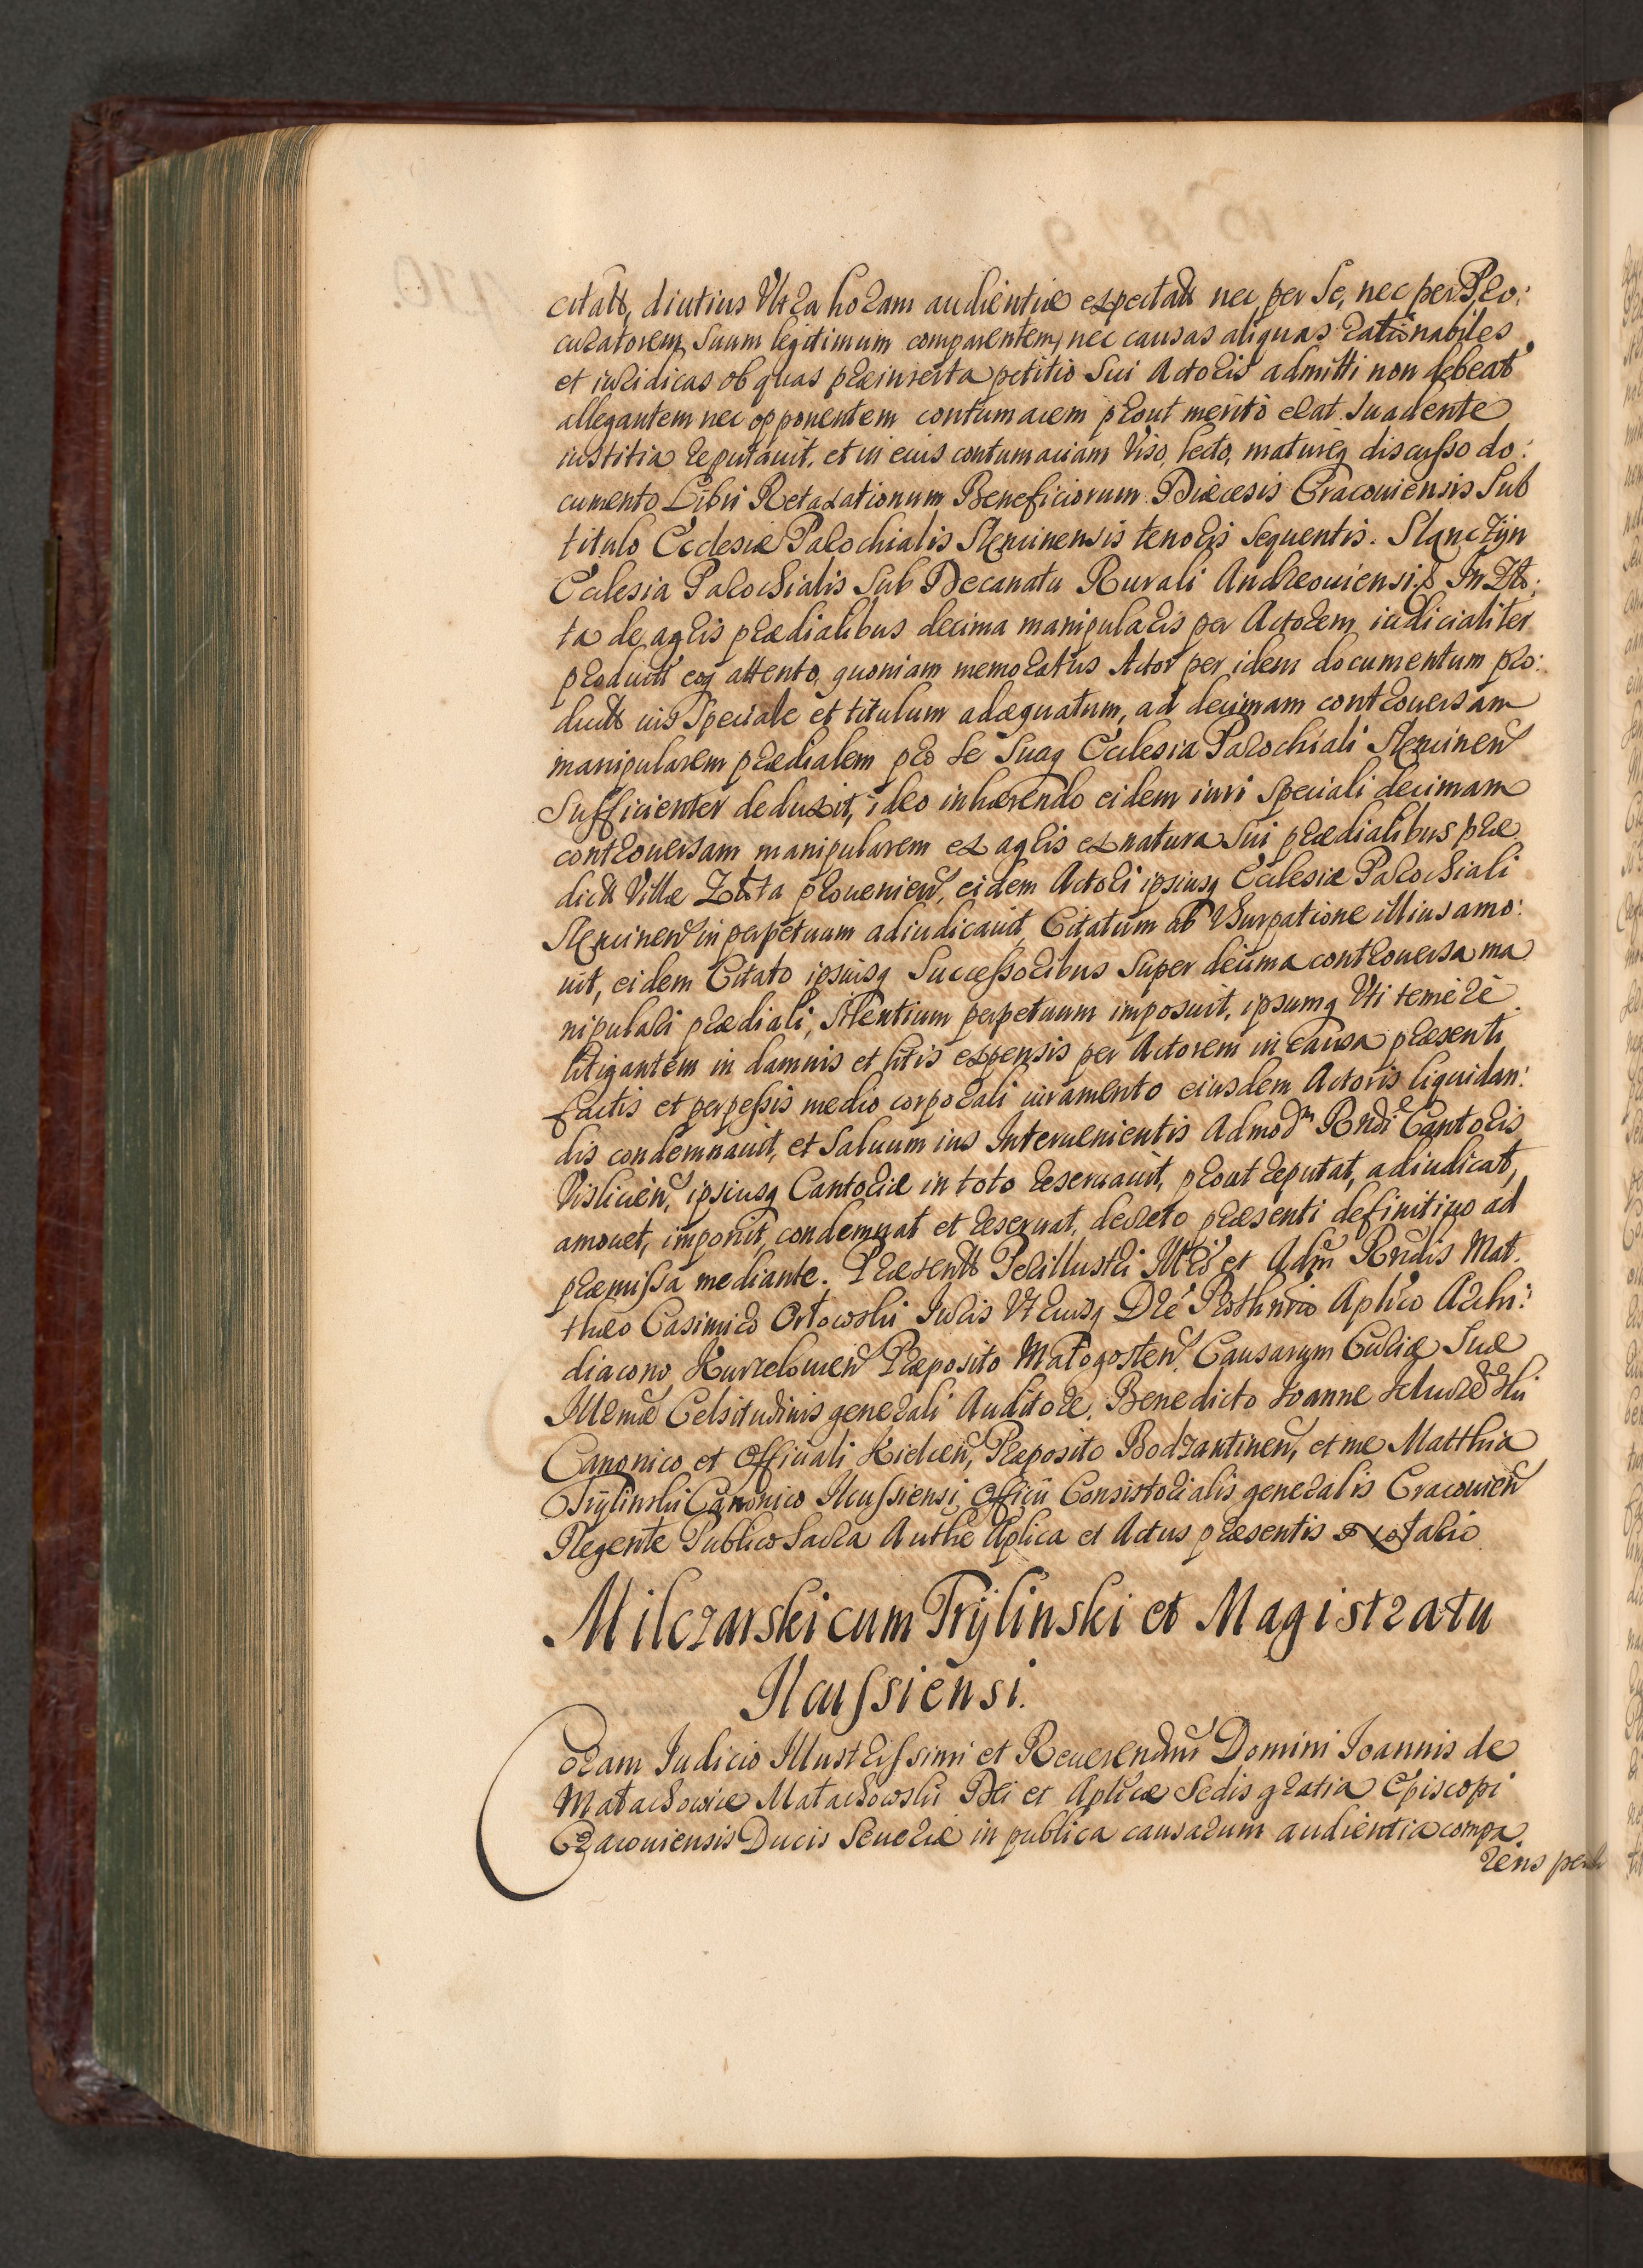 citatt, diutius Ultra horam audientiæ expectatt nec per Se, nec per Pro:
curatorem Suum legitimum comparentem, nec causas aliquas rationabiles
et iuridicas ob quas præinserta petitio Sui Actoris admitti non debeat
allegantem nec opponentem contumacem prout merito erat Suadente
iustitia reputauit, et in eius contumaciam Viso, lecto, matureq discusso do:
cumento Libri Retaxationum Beneficiorum Diæcesis Cracouiensis Sub
titulo Ecclesiæ Parochialis tenoris Sequentis.
Ecclesia Parochialis Sub Decanatu Rurali Andreouiensi. In
ta de agris prædialibus decima manipularis per Actorem iudicialiter
productt eoq attento, quoniam memoratus Actor per idem documentum pro:
ductt ius Speciale et titulum adæquatum, ad decimam controuersam
manipularem prædialem pro Se Suaq Ecclesia Parochiali
Sufficienter deduxit, ideo inhærendo eidem iuri Speciali decimam
controuersam manipularem ex agris ex natura Sui prædialibus præ
dictt Villæ prouenien, eidem Actori ipsiusq Ecclesiæ Parochiali
in perpetuum adiudicauit, Citatum ab Usurpatione illius amo:
uit, eidem Citato ipsiusq Successoribus Super decima controuersa ma
nipulari prædiali, Silentium perpetuum imposuit, ipsumq Uti temere
litigantem in damnis et litis expensis per Actorem in causa præsenti
factis et perpessis medio corporali iuramento eiusdem Actoris liquidan:
dis condemnauit, et Saluum ius Interuenientis Admodm Rndi Cantoris
Vislicien, ipsiusq Cantoriæ in toto reseruauit, prout reputat, adiudicat,
amouet, imponit, condemnat et reseruat, decreto præsenti definitiuo ad
præmissa mediante. Præsentt Perillustri Illri et Adm Rndis Mat.
thæo Casimiro Orłowski Iuris Utriusq Dre Prothnrio Aplico Archi:
diacono Kurzelouien Præposito Małogosten, Causarum Curiæ Suæ
Illrmæ Celsitudinis generali Auditore, Benedicto Ioanne
Canonico et Officiali Kielcen, Præposito Bodzantinen, et me Matthia
Trÿlinski Canonico Ilcussiensi, Officii Consistorialis generalis Cracouien
Regente Publico Sacra Authe Aplica et Actus præsentis Notario
Milczarski cum Trÿlinski et Magistratu
Ilcussiensi.
Coram Iudicio Illustrissimi et Reuerendmi Domini Ioannis de
Małachowice Małachowski Dei et Aplicæ Sedis gratia Episcopi
Cracouiensis Ducis Seueriæ in publica causarum audientia compa.
rens